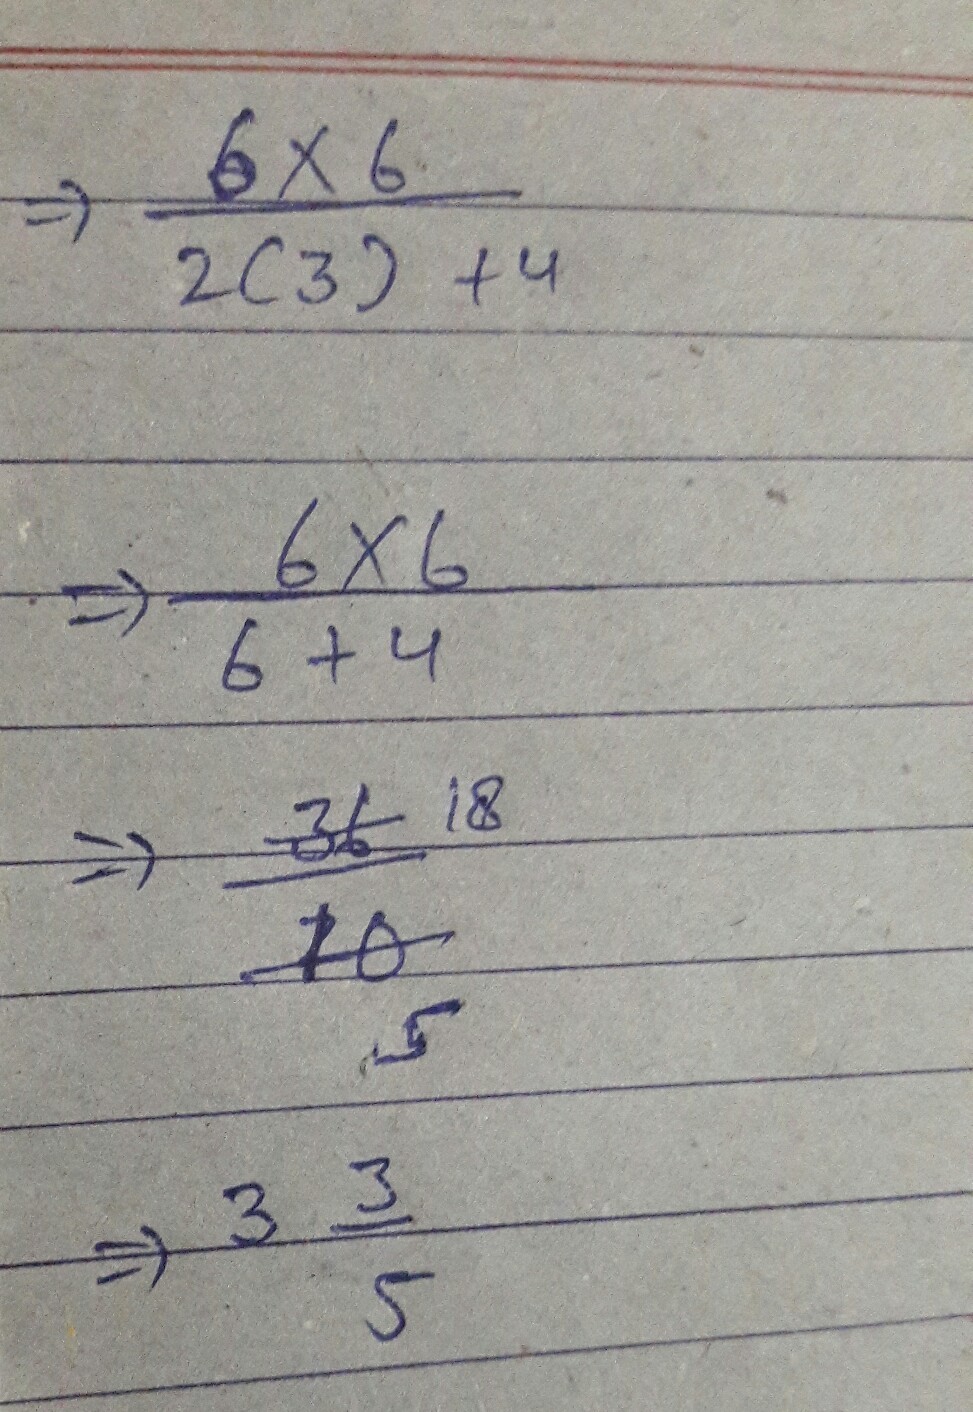 ⇒ 6 × 6
2(3) + 4
⇒ 6 × 6
6 + 4
⇒ 36 18
10
5
⇒ 3 3
5